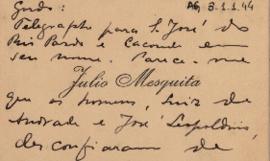 Gordo: AG, 3-1.1.44
Telegraphe para S. José do
Rio Pardo e Caconde em
seu nome. Parece-me
Julio Mesquita
que os homens, Luiz de
Andrade e José Leopoldino,
desconfiaram de